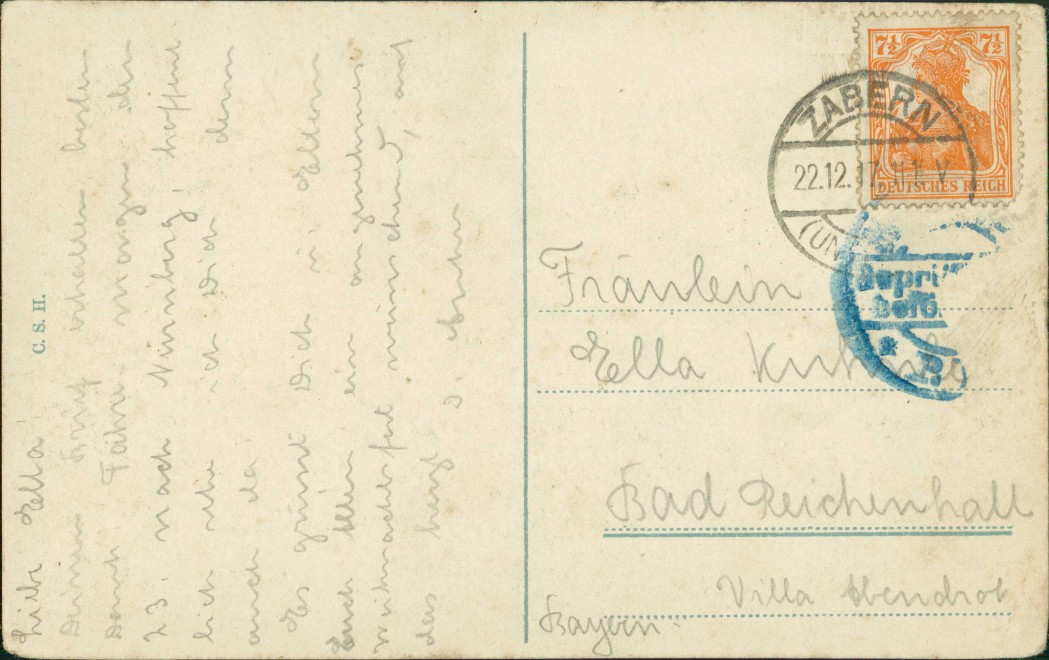 Liebe Ella
Deinen Brief erhalten besten
Dank Fahre morgen den
23. nach Nürnberg, hoffent
lich sehe ich Dich denn
auch da
Es grüsst Dich u. Eltern
Euch allen ein angenehmes
Weihnachtsfest wünschend, auf
das herz. D.
C. S. H.
7½ 7½
DEUTSCHES REICH
ZABERN
22.12.17
Fräulein
Ella
Bad Reichenhall
Villa Abendrot
Bayern.